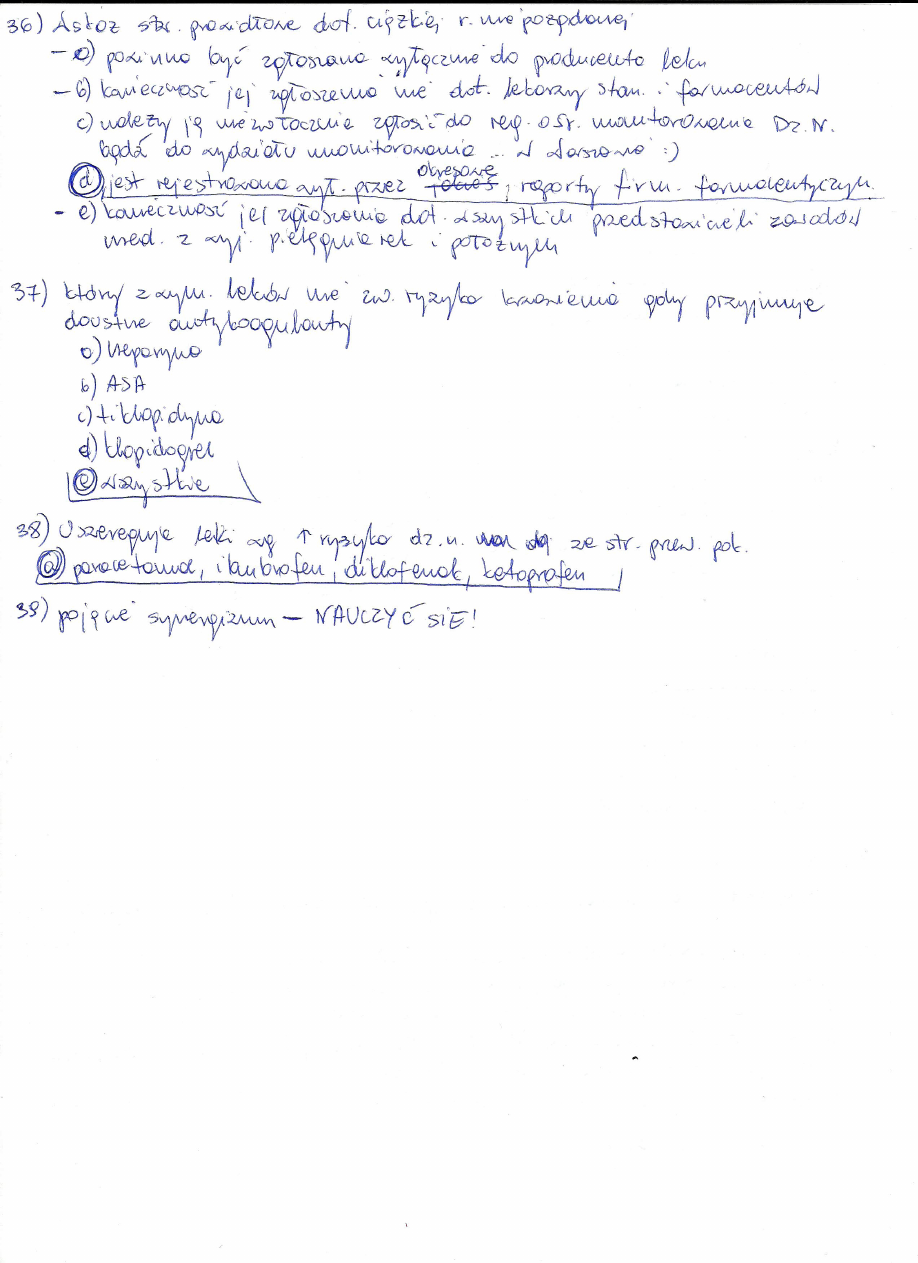 36) Wskaż stw. prawidłowe dot. ciężkiej r. niepożądanej
- a) powinna być zgłoszona wyłącznie do producenta leku
- b) konieczność jej zgłoszenia nie dot. lekarzy stom. i farmaceutów
c) należy ją niezwłocznie zgłosić do reg. ośr. monitorowania Dz. N.
bądź do wydziału monitorowania ... w Warszawie :)
d) jest rejestrowana wył. przez okresowe raporty firm. farmaceutycznych.
- e) konieczność jej zgłoszenia dot. wszystkich przedstawicieli zawodów
med. z wyj. pielęgniarek i położnych
37) który z wym. leków nie zw. ryzyka krwawienia gdy przyjmuje
doustne antykoagulanty
a) heparyna
b) ASA
c) tiklopidyna
d) klopidogrel
e) wszystkie
38) Uszereguj leki wg ↑ ryzyka dz. n. ze str. przew. pok.
a) paracetamol, ibubrofen, diklofenak, ketoprofen
39) pojęcie synergizmu - NAUCZYĆ SIĘ!